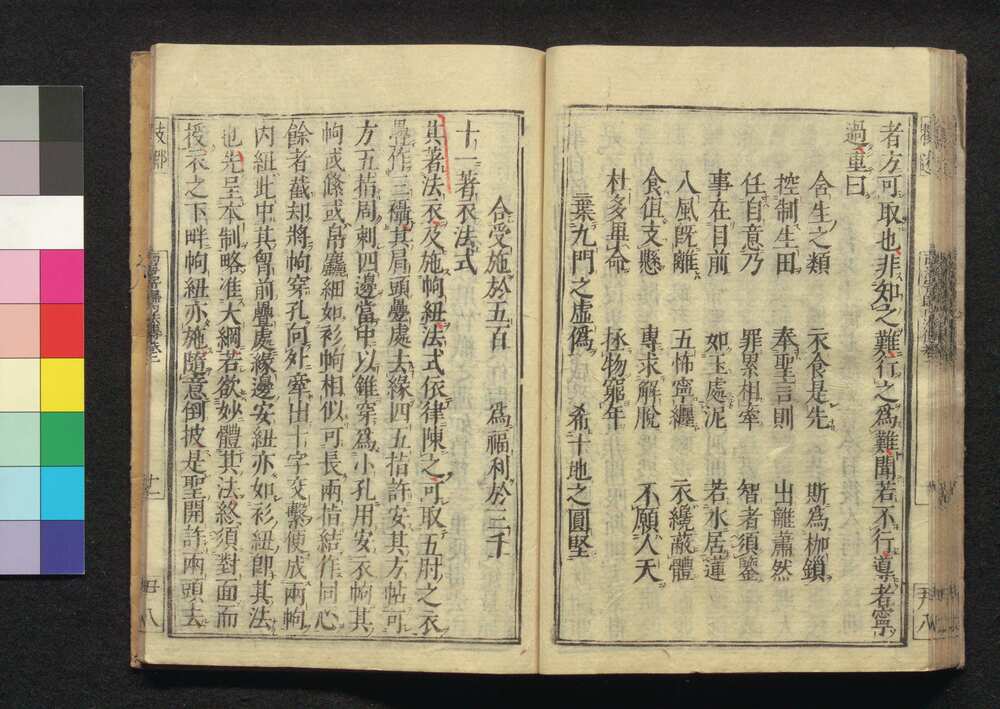 者方可取也非知之難行之爲難聞若不行導者寧
過重曰
含生之類 衣食是先 斯爲枷鎖
控制生田 奉聖言則 出離蕭然
任自意乃 罪累相牽 智者須鑒
事在目前 如玉處泥 若水居蓮
八風既離 五怖寧纏 衣纔蔽體
食但支懸 專求解脫 不願人天
杜多畢命 拯物窮年
棄九門之虛僞 希十地之圓堅
合受施於五百 爲福利於三千
十一著衣法式
其著法衣及施㡚紐法式依律陳之可取五肘之衣
疊作三襵其肩頭疊處去緣四五指許安其方帖可
方五指周刺四邊當中以錐穿爲小孔用安衣㡚其
㡚或絛或帛麤細如衫㡚相似可長兩指結作同心
餘者截却將㡚穿孔向外牽出十字交繫便成兩㡚
內紐此中其胷前疊處緣邊安紐亦如衫紐即其法
也先呈本制略准大綱若欲妙體其法終須對面而
授衣之下畔㡚紐亦施隨意倒披是聖開許兩頭去